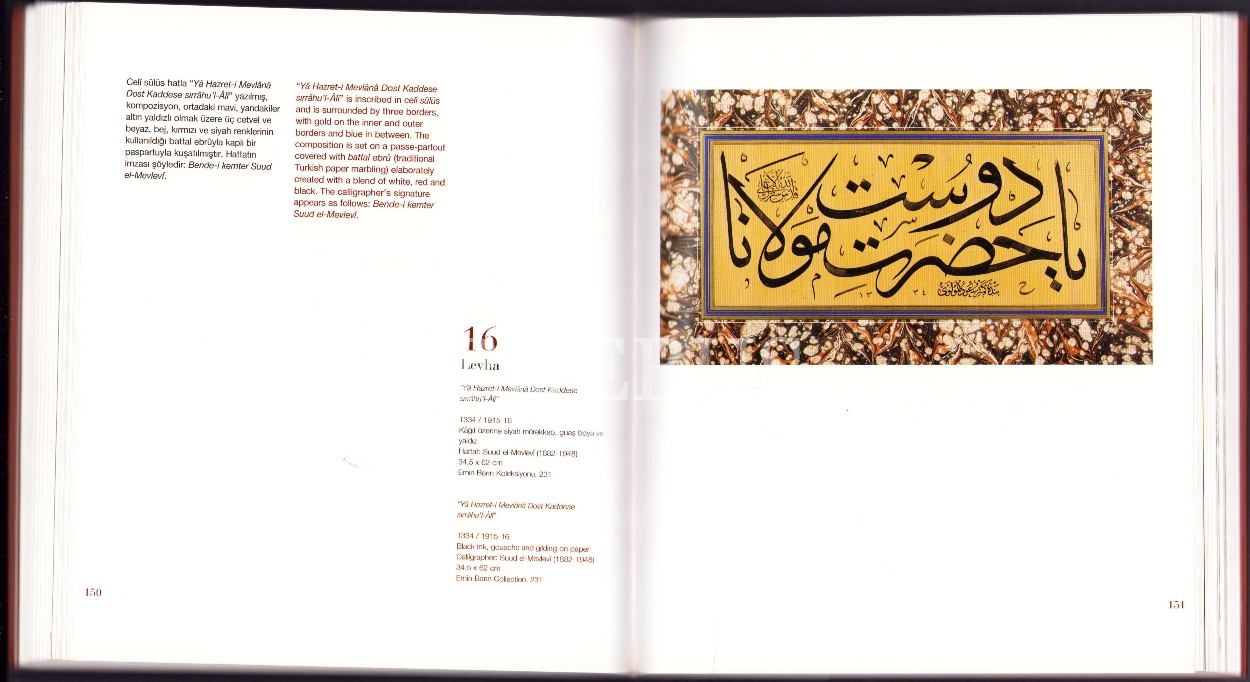 Celî sülüs hatla “Yâ Hazret-i Mevlânâ
Dost Kaddese sırrâhu’l-Âlî” yazılmış,
kompozisyon, ortadaki mavi, yandakiler
altın yaldızlı olmak üzere üç cetvel ve
beyaz, bej, kırmızı ve siyah renklerinin
kullanıldığı battal ebrûyla kaplı bir
paspartuyla kuşatılmıştır. Hattatın
imzası şöyledir: Bende-i kemter Suud
el-Mevlevî.
“Yâ Hazret-i Mevlânâ Dost Kaddese
sırrâhu’l-Âlî” is inscribed in celî sülüs
and is surrounded by three borders,
with gold on the inner and outer
borders and blue in between. The
composition is set on a passe-partout
covered with battal ebrû (traditional
Turkish paper marbling) elaborately
created with a blend of white, red and
black. The calligrapher’s signature
appears as follows: Bende-i kemter
Suud el-Mevlevî.
16
Levha
“Yâ Hazret-i Mevlânâ Dost Kaddese
sırrâhu’l-Âlî”
1334 / 1915-16
Kâğıt üzerine siyah mürekkep, guaş boya ve
yaldız
Hattat: Suud el-Mevlevî (1882-1948)
34.5 x 62 cm
Emin Barın Koleksiyonu, 231
“Yâ Hazret-i Mevlânâ Dost Kaddese
sırrâhu’l-Âlî”
1334 / 1915-16
Black ink, gouache and gilding on paper
Calligrapher: Suud el-Mevlevî (1882-1948)
34.5 x 62 cm
Emin Barın Collection, 231
150
يا حضرت مولانا
دوست
١٣٣٤
151